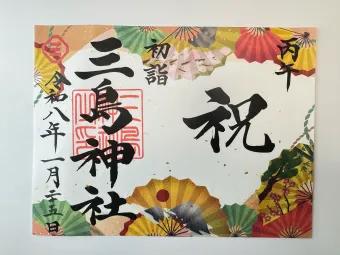 丙午
祝
初詣
三島神社
令和八年一月二十五日